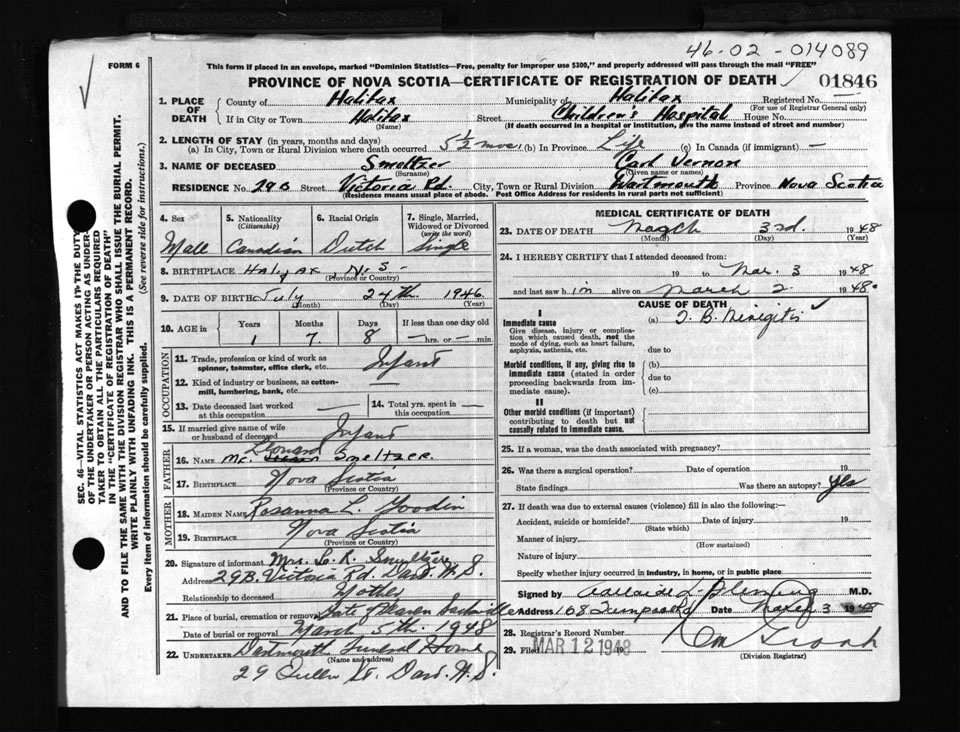 46-02-014089
FORM 6
This form if placed in an envelope, marked "Dominion Statistics—Free, penalty for improper use $300," and properly addressed will pass through the mail "FREE"
PROVINCE OF NOVA SCOTIA—CERTIFICATE OF REGISTRATION OF DEATH 01846
1. PLACE OF DEATH County of Halifax Municipality of Halifax Registered No.
(For use of Registrar General only)
If in City or Town Halifax Street Children's Hospital House No.
(Name) (If death occurred in a hospital or institution, give the name instead of street and number)
2. LENGTH OF STAY (in years, months and days)
(a) In City, Town or Rural Division where death occurred 5½ mos. (b) In Province Life (c) In Canada (if immigrant) —
3. NAME OF DECEASED Smeltzer Carl Vernon
(Surname) (Given name or names)
RESIDENCE No. 29B Street Victoria Rd. City, Town or Rural Division Dartmouth Province Nova Scotia
(Residence means usual place of abode. Post Office Address for residents in rural parts not sufficient)
SEC. 46—VITAL STATISTICS ACT MAKES IT THE DUTY
OF THE UNDERTAKER OR PERSON ACTING AS UNDER-
TAKER TO OBTAIN ALL THE PARTICULARS REQUIRED
IN THE "CERTIFICATE OF REGISTRATION OF DEATH"
AND TO FILE THE SAME WITH THE DIVISION REGISTRAR WHO SHALL ISSUE THE BURIAL PERMIT.
WRITE PLAINLY WITH UNFADING INK. THIS IS A PERMANENT RECORD.
Every item of information should be carefully supplied. (See reverse side for instructions.)
4. Sex 5. Nationality (Citizenship) 6. Racial Origin 7. Single, Married, Widowed or Divorced (write the word)
Male Canadian Dutch Single
8. BIRTHPLACE Halifax, N.S.
(Province or Country)
9. DATE OF BIRTH July 24th. 1946
(Month) (Day) (Year)
10. AGE in Years Months Days If less than one day old
1 7 8 — hrs. or — min
OCCUPATION
11. Trade, profession or kind of work as spinner, teamster, office clerk, etc. Infant
12. Kind of industry or business, as cotton-mill, lumbering, bank, etc. —
13. Date deceased last worked at this occupation — 14. Total yrs. spent in this occupation —
15. If married give name of wife or husband of deceased Infant
FATHER
16. NAME Mr. Leonard Smeltzer.
17. BIRTHPLACE Nova Scotia
(Province or Country)
MOTHER
18. MAIDEN NAME Rosanna L. Goodin
19. BIRTHPLACE Nova Scotia
(Province or Country)
20. Signature of informant Mrs. L. R. Smeltzer
Address 29B. Victoria Rd. Dart. N.S.
Relationship to deceased Mother
21. Place of burial, cremation or removal Gate of Heaven Sackville
Date of burial or removal March 5th. 1948
22. UNDERTAKER Dartmouth Funeral Home
(Name and address)
29 Queen St. Dart. N.S.
MEDICAL CERTIFICATE OF DEATH
23. DATE OF DEATH March 3rd. 1948
(Month) (Day) (Year)
24. I HEREBY CERTIFY that I attended deceased from:
19 to Mar. 3 1948
and last saw him alive on March 2 1948.
CAUSE OF DEATH
I
Immediate cause (a) T. B. Menigitis
Give disease, injury or complication which caused death, not the mode of dying, such as heart failure, asphyxia, asthenia, etc.
due to
Morbid conditions, if any, giving rise to immediate cause (stated in order proceeding backwards from immediate cause).
(b)
due to
(c)
II
Other morbid conditions (if important) contributing to death but not causally related to immediate cause.
25. If a woman, was the death associated with pregnancy?
26. Was there a surgical operation? Date of operation 19
State findings Was there an autopsy? Yes
27. If death was due to external causes (violence) fill in also the following:—
Accident, suicide or homicide? Date of injury 19
(State which)
Manner of injury
(How sustained)
Nature of injury
Specify whether injury occurred in industry, in home, or in public place
Signed by M.D.
Address 168 Date March 3 1948
28. Registrar's Record Number
29. Filed MAR 12 1948
(Division Registrar)